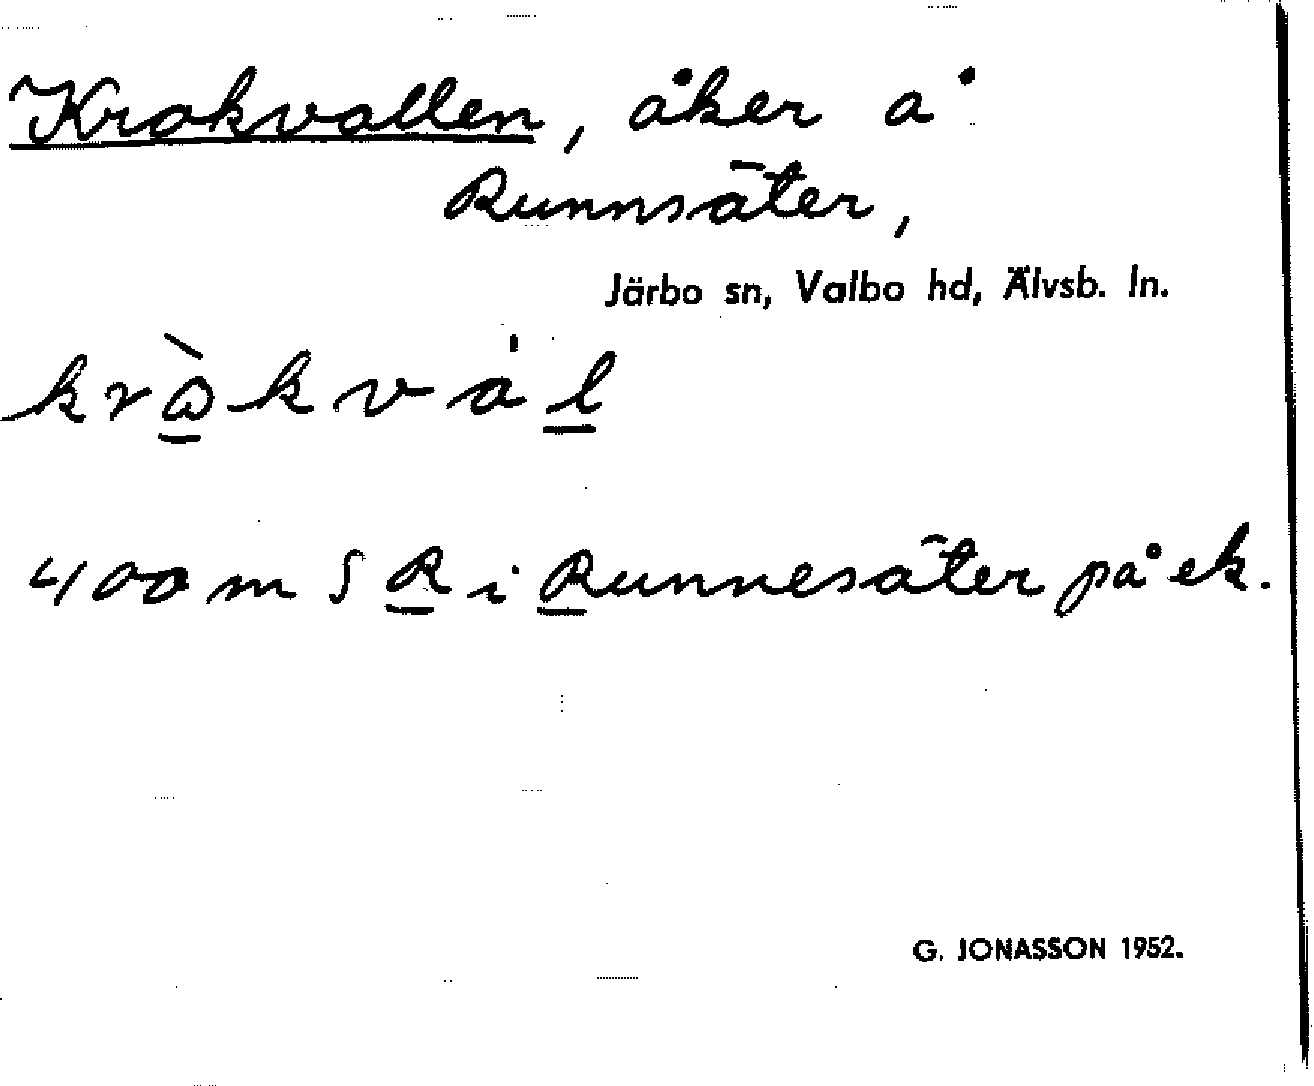 Krokvallen, åker å
Runnsäter,
Järbo sn, Valbo hd, Älvsb. ln.
kròkvál
400 m S R i Runnesäter på ek.
G. JONASSON 1952.